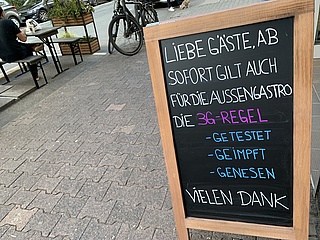 LIEBE GÄSTE, AB
SOFORT GILT AUCH
FÜR DIE AUSSENGASTRO
DIE 3G-REGEL
-GETESTET
-GEIMPFT
-GENESEN
VIELEN DANK